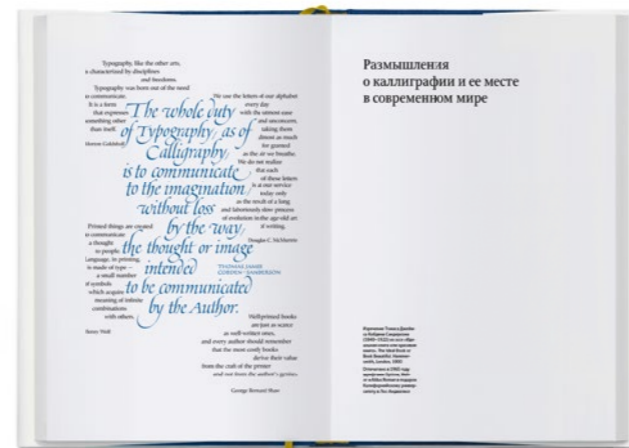 Typography, like the other arts,
is characterized by disciplines
and freedoms.
Typography was born out of the need
to communicate.
It is a form
that expresses
something other
than itself.
We use the letters of our alphabet
every day
with the utmost ease
and unconcern,
taking them
almost as much
for granted
as the air we breathe.
We do not realize
that each
of these letters
is at our service
today only
as the result of a long
and laboriously slow process
of evolution in the age-old art
of writing.
Douglas C. McMurtrie
The whole duty
of Typography, as of
Calligraphy,
is to communicate
to the imagination,
without loss
by the way,
the thought or image
intended
to be communicated
by the Author.
THOMAS JAMES
COBDEN-SANDERSON
Printed things are created
to communicate
a thought
to people.
Language, in printing,
is made of type —
a small number
of symbols
which acquire
meaning of infinite
combinations
with others.
Well-printed books
are just as scarce
as well-written ones,
and every author should remember
that the most costly books
derive their value
from the craft of the printer
and not from the author's genius.
George Bernard Shaw
Размышления
о каллиграфии и ее месте
в современном мире